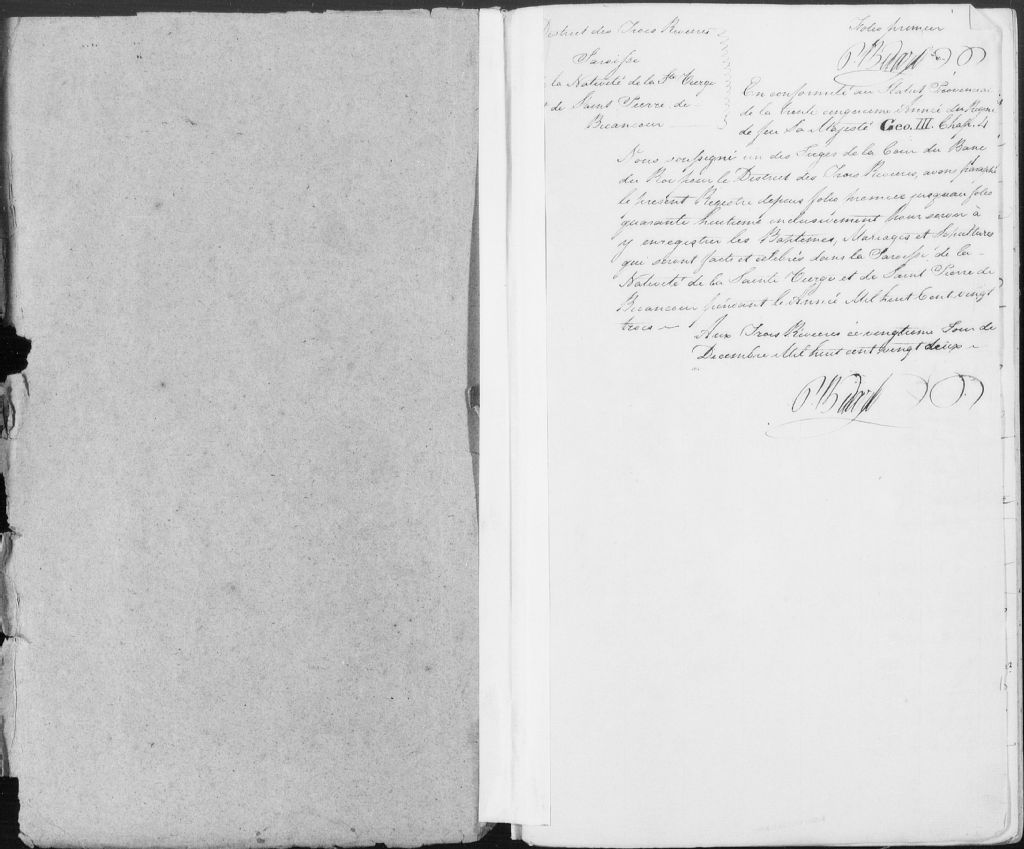 District des Trois Rivieres
Paroisse
la Nativité de la Ste Vierge
de Saint Pierre de
Becancour
Folio premier
P. Bedard
En conformité au Statut Provincial
de la trente cinquieme Année du Regne
de feu Sa Majesté Geo. III. Chap. 4
Nous soussigné un des Juges de la Cour du Banc
du Roi pour le District des Trois Rivieres, avons paraphé
le présent Registre depuis folio premier jusquau folio
quarante huitieme inclusivement pour servir à
y enregistrer les Baptemes, Mariages et Sepultures
qui seront faits et celebrés dans la Paroisse de la
Nativité de la Sainte Vierge et de Saint Pierre de
Becancour pendant le Année Mil huit Cent vingt
trois
Aux Trois Rivieres ce vingtieme Jour de
Decembre Mil huit cent vingt deux
P. Bedard